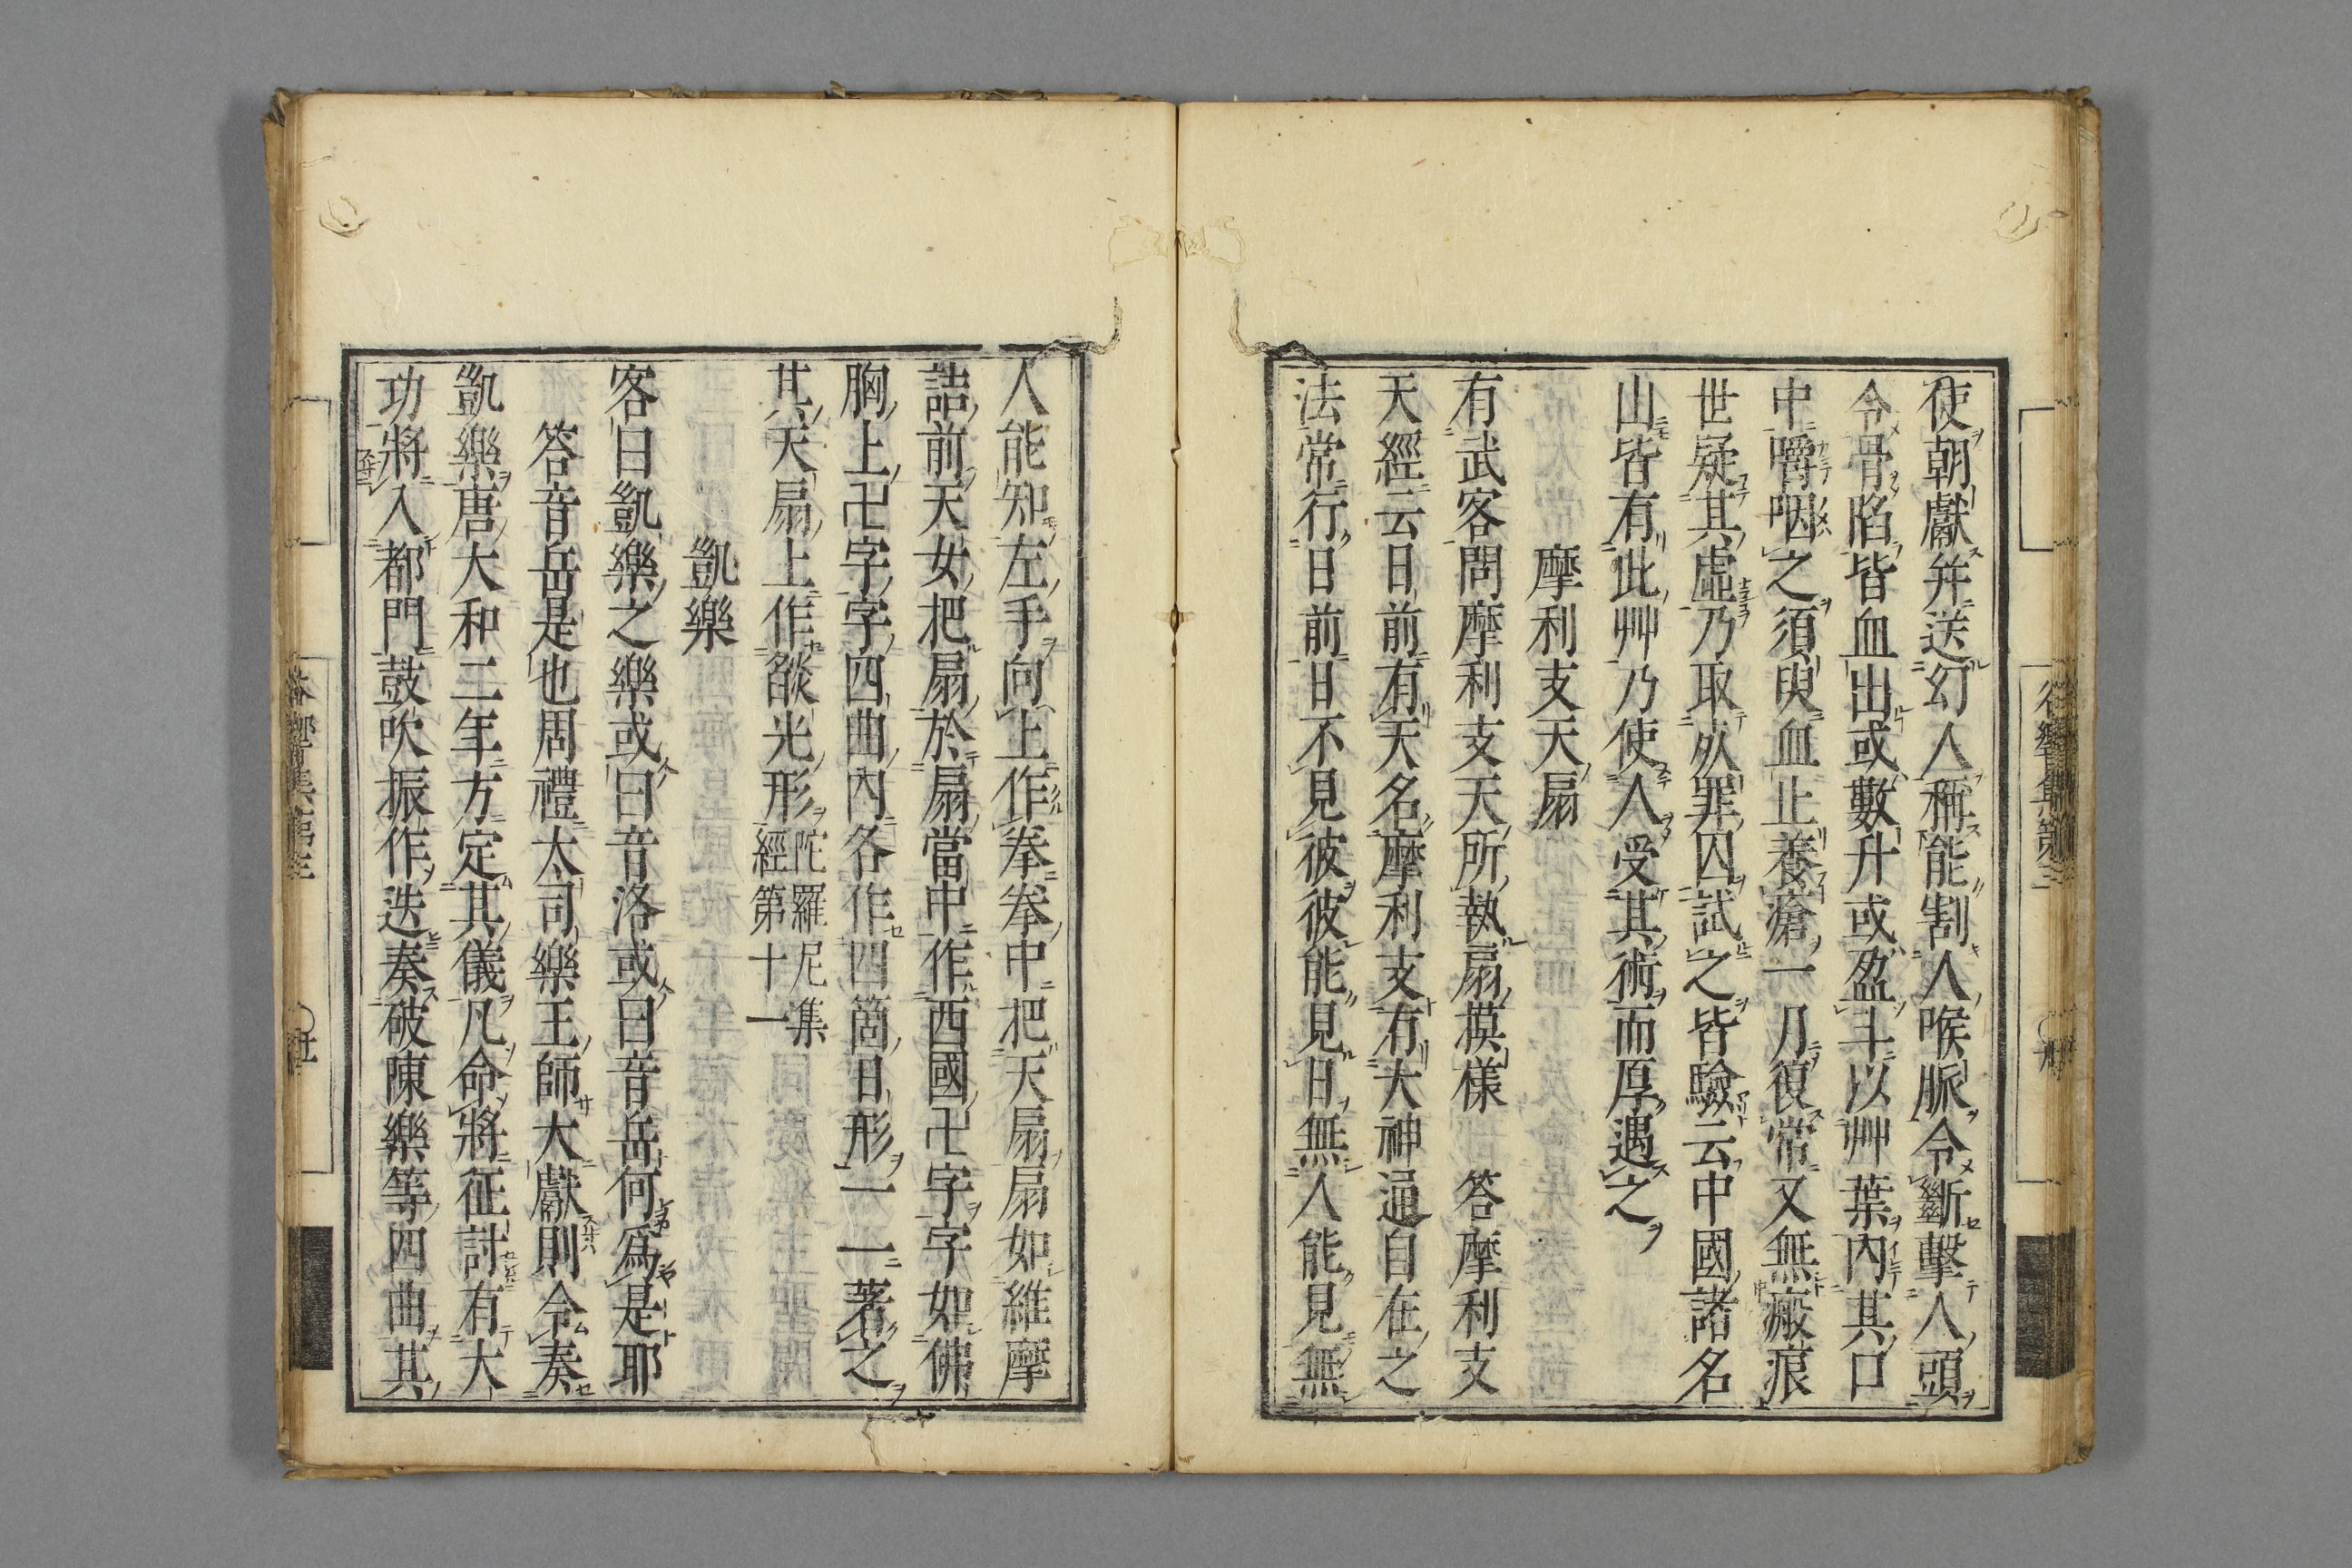 使朝獻幷送幻人稱能割人喉脈令斷擊人頭
令骨陷皆血出或數升或盈斗以艸葉內其口
中嚼咽之須臾血止養瘡一月復常又無瘢痕
世疑其虛乃取死罪囚試之皆驗云中國諸名
山皆有此艸乃使人受其術而厚遇之
摩利支天扇
有武客問摩利支天所執扇摸樣　答摩利支
天經云日前有天名摩利支有大神通自在之
法常行日前日不見彼彼能見日無人能見無
人能知左手向上作拳拳中把天扇扇如維摩
詰前天女把扇於扇當中作西國卍字字如佛
胸上卍字字四曲內各作四箇日形一一著之
其天扇上作燄光形陀羅尼集
經第十一
凱樂
客曰凱樂之樂或曰音洛或曰音岳何爲是耶
答音岳是也周禮大司樂王師大獻則令奏
凱樂唐大和二年方定其儀凡命將征討有大
功將入都門鼓吹振作迭奏破陳樂等四曲其